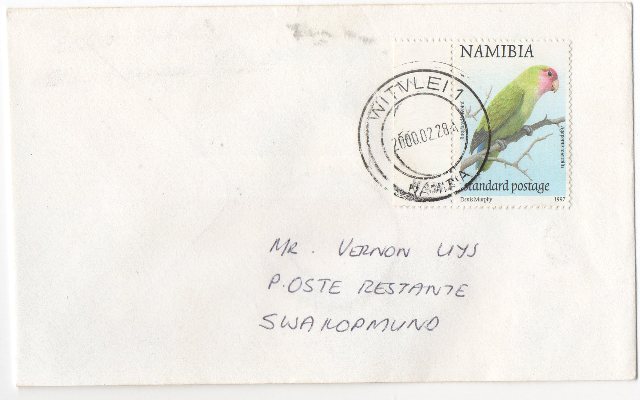 NAMIBIA
WITVLEI 1
2000.02.28
NAMIBIA
Standard postage
Denis Murphy 1997
MR. VERNON UYS
P.OSTE RESTANTE
SWAKOPMUND